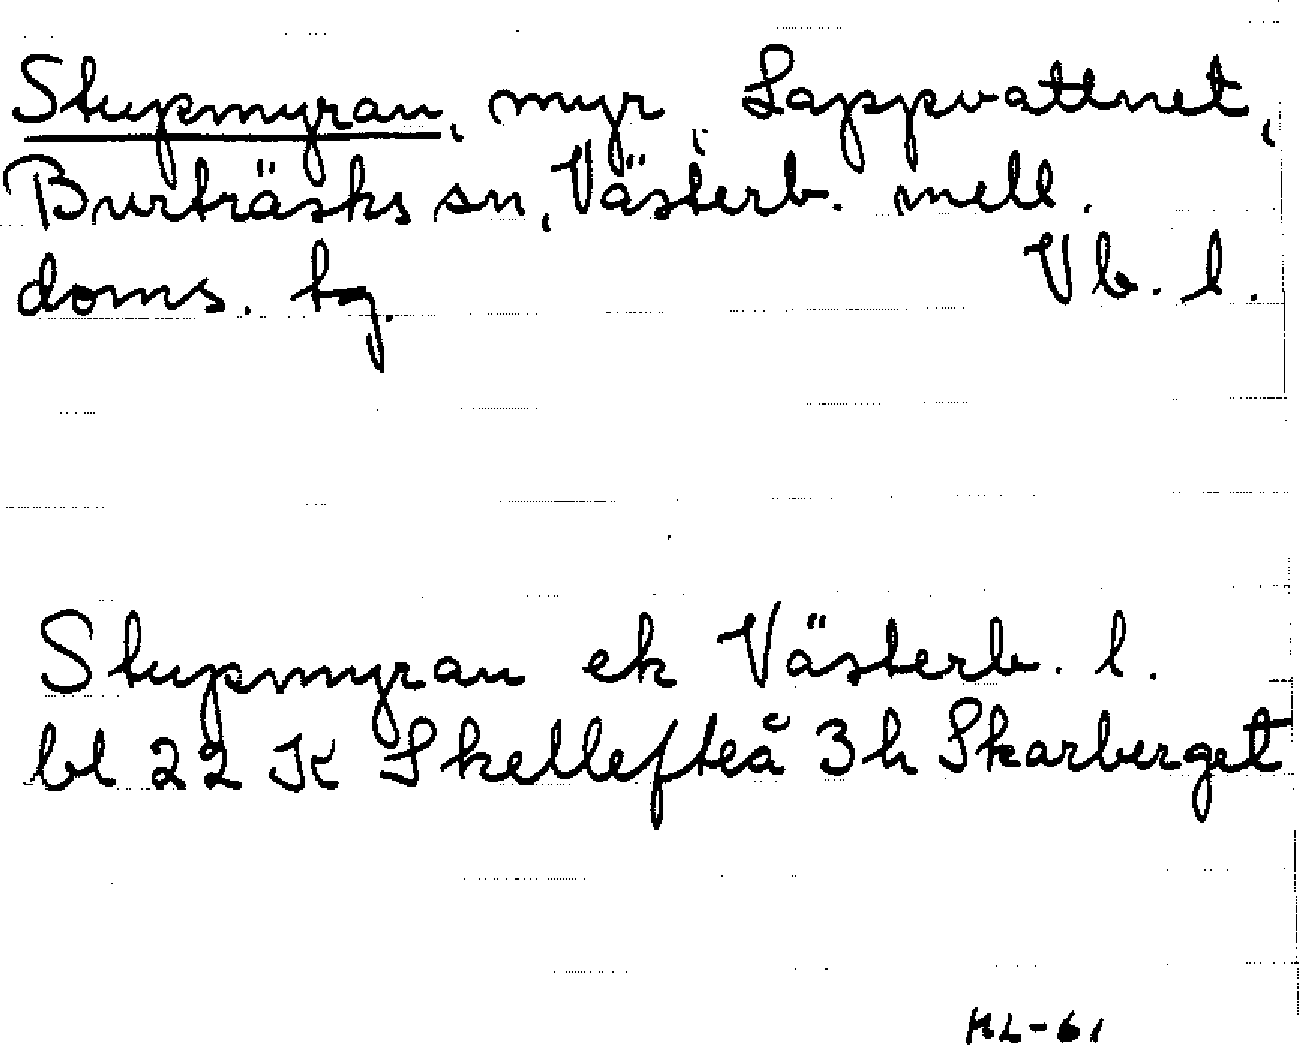 Stupmyran, myr, Lappvattnet,
Burträsks sn, Västerb. mell.
doms. tg. Vb. l.
Stupmyran ek Västerb. l.
bl 22 K Skellefteå 3h Skarberget
KL-61